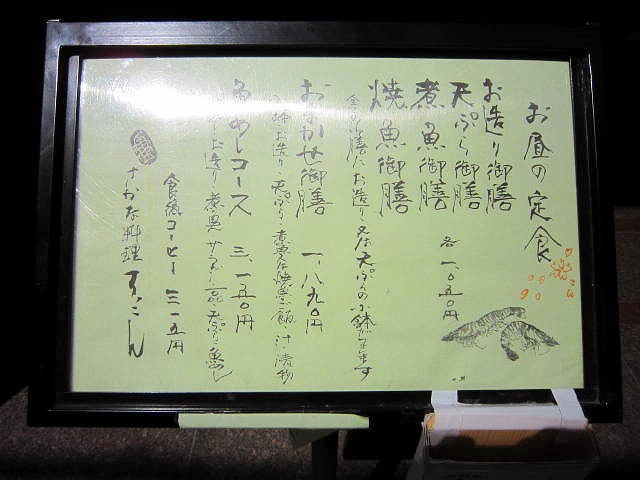 お昼の定食
お造り御膳
天ぷら御膳
煮魚御膳
焼魚御膳
各 一、〇五〇円
全ての御膳にお造り又は天ぷらの小鉢が付きます
おまかせ御膳 一、八九〇円
お造り、天ぷら、煮魚又は焼魚、ご飯、汁、漬物
魚めしコース 三、一五〇円
お造り、煮魚、サラダ、天ぷら、魚めし
食後コーヒー 三一五円
さかな料理